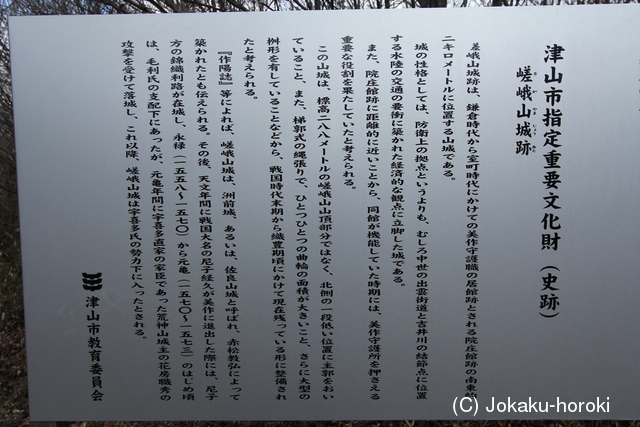 津山市指定重要文化財（史跡）
嵯峨山城跡
さがやまじょうあと
嵯峨山城跡は、鎌倉時代から室町時代にかけての美作守護職の居館跡とされる院庄館跡の南東約
二キロメートルに位置する山城である。
城の性格としては、防衛上の拠点というよりも、むしろ中世の出雲街道と吉井川の結節点に位置
する水陸の交通の要衝に築かれた経済的な観点に立脚した城である。
また、院庄館跡に距離的に近いことから、同館が機能していた時期には、美作守護所を押さえる
重要な役割を果たしていたと考えられる。
この山城は、標高二八八メートルの嵯峨山山頂部分ではなく、北側の一段低い位置に主郭をおい
ていること、また、梯郭式の縄張りで、ひとつひとつの曲輪の面積が大きいこと、さらに大型の
桝形を有していることなどから、戦国時代末期から織豊期頃にかけて現在残っている形に整備され
たと考えられる。
『作陽誌』等によれば、嵯峨山城は、洲前城、あるいは、佐良山城と呼ばれ、赤松教弘によって
築かれたとも伝えられる。その後、天文年間に戦国大名の尼子経久が美作に進出した際には、尼子
方の錦織利路が在城し、永禄（一五五八〜一五七〇）から元亀（一五七〇〜一五七三）のはじめ頃
は、毛利氏の支配下にあったが、元亀年間に宇喜多直家の家臣であった荒神山城主の花房職秀の
攻撃を受けて落城し、これ以降、嵯峨山城は宇喜多氏の勢力下に入ったとされる。
津山市教育委員会
(C) Jokaku-horoki